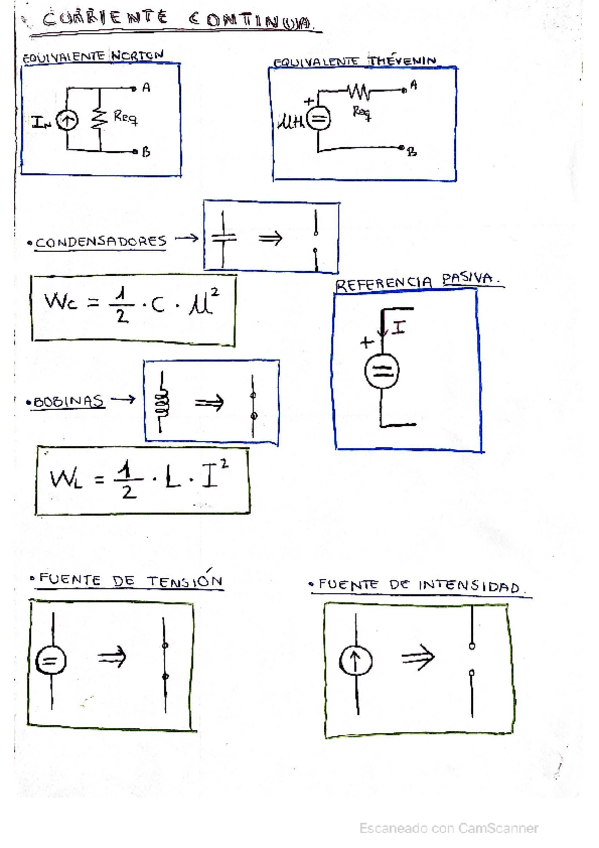 CORRIENTE CONTINUA.
EQUIVALENTE NORTON
EQUIVALENTE THÉVENIN
A
IN
Req
B
+
A
Uth
Req
B
• CONDENSADORES → ⇒
Wc = 1/2 · C · U²
REFERENCIA PASIVA.
I
+
• BOBINAS → ⇒
WL = 1/2 · L · I²
• FUENTE DE TENSIÓN
• FUENTE DE INTENSIDAD.
⇒
⇒
Escaneado con CamScanner